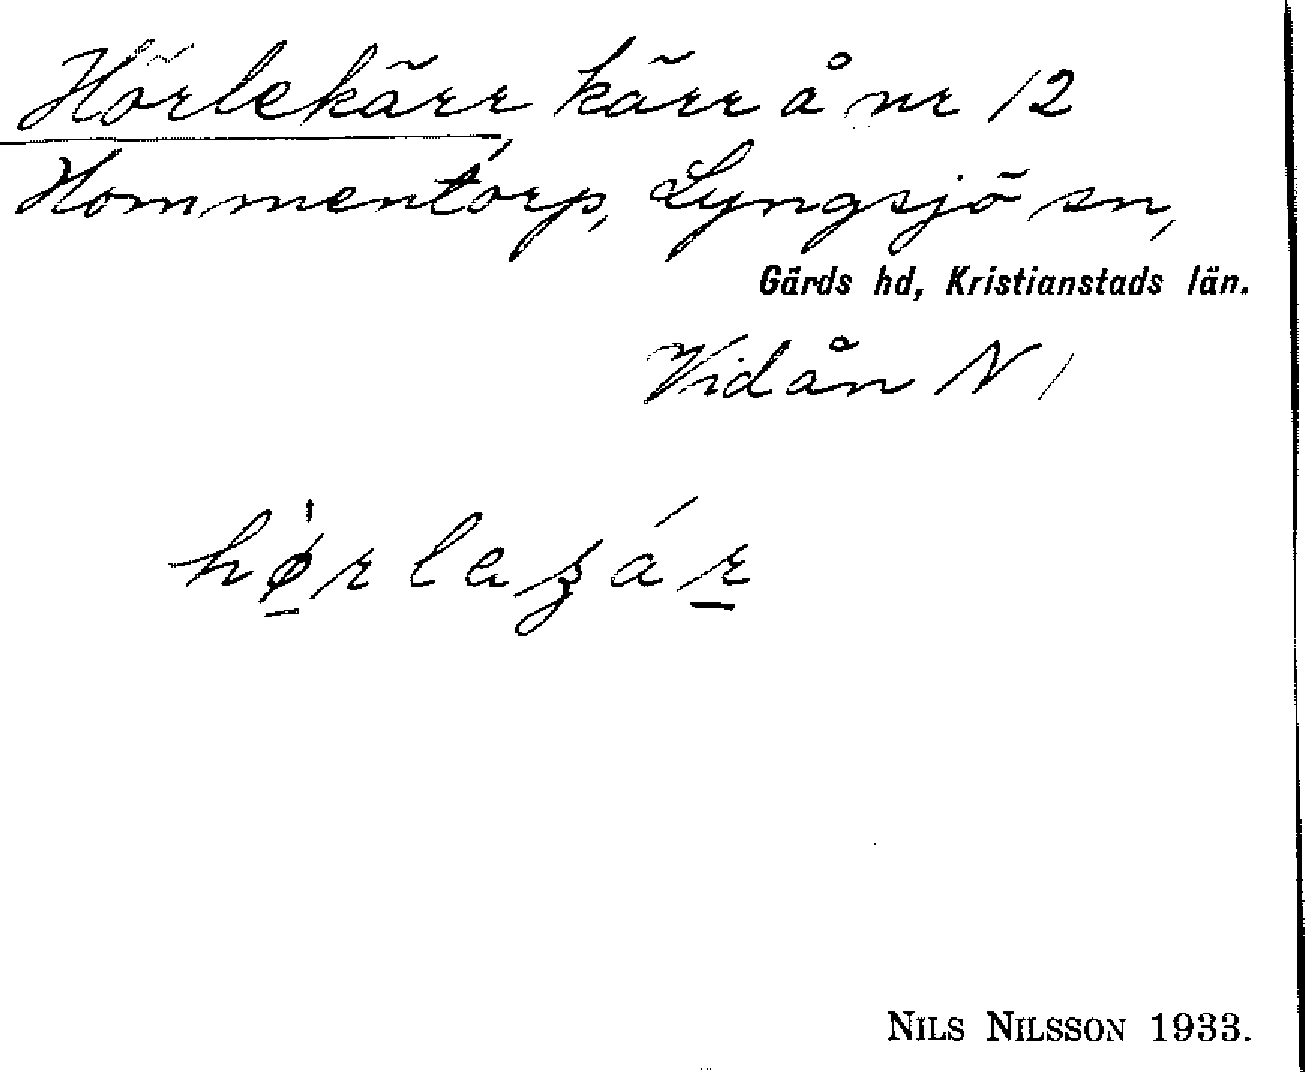 Hörlekärr, kärr å nr 12
Hommentorp, Lyngsjö sn,
Gärds hd, Kristianstads län.
Vidån N 1
NILS NILSSON 1933.